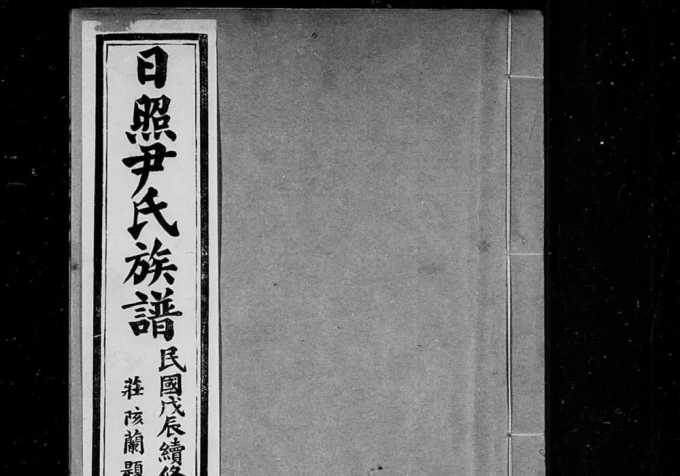 日照尹氏族譜
民國戊辰續修
莊陔蘭題